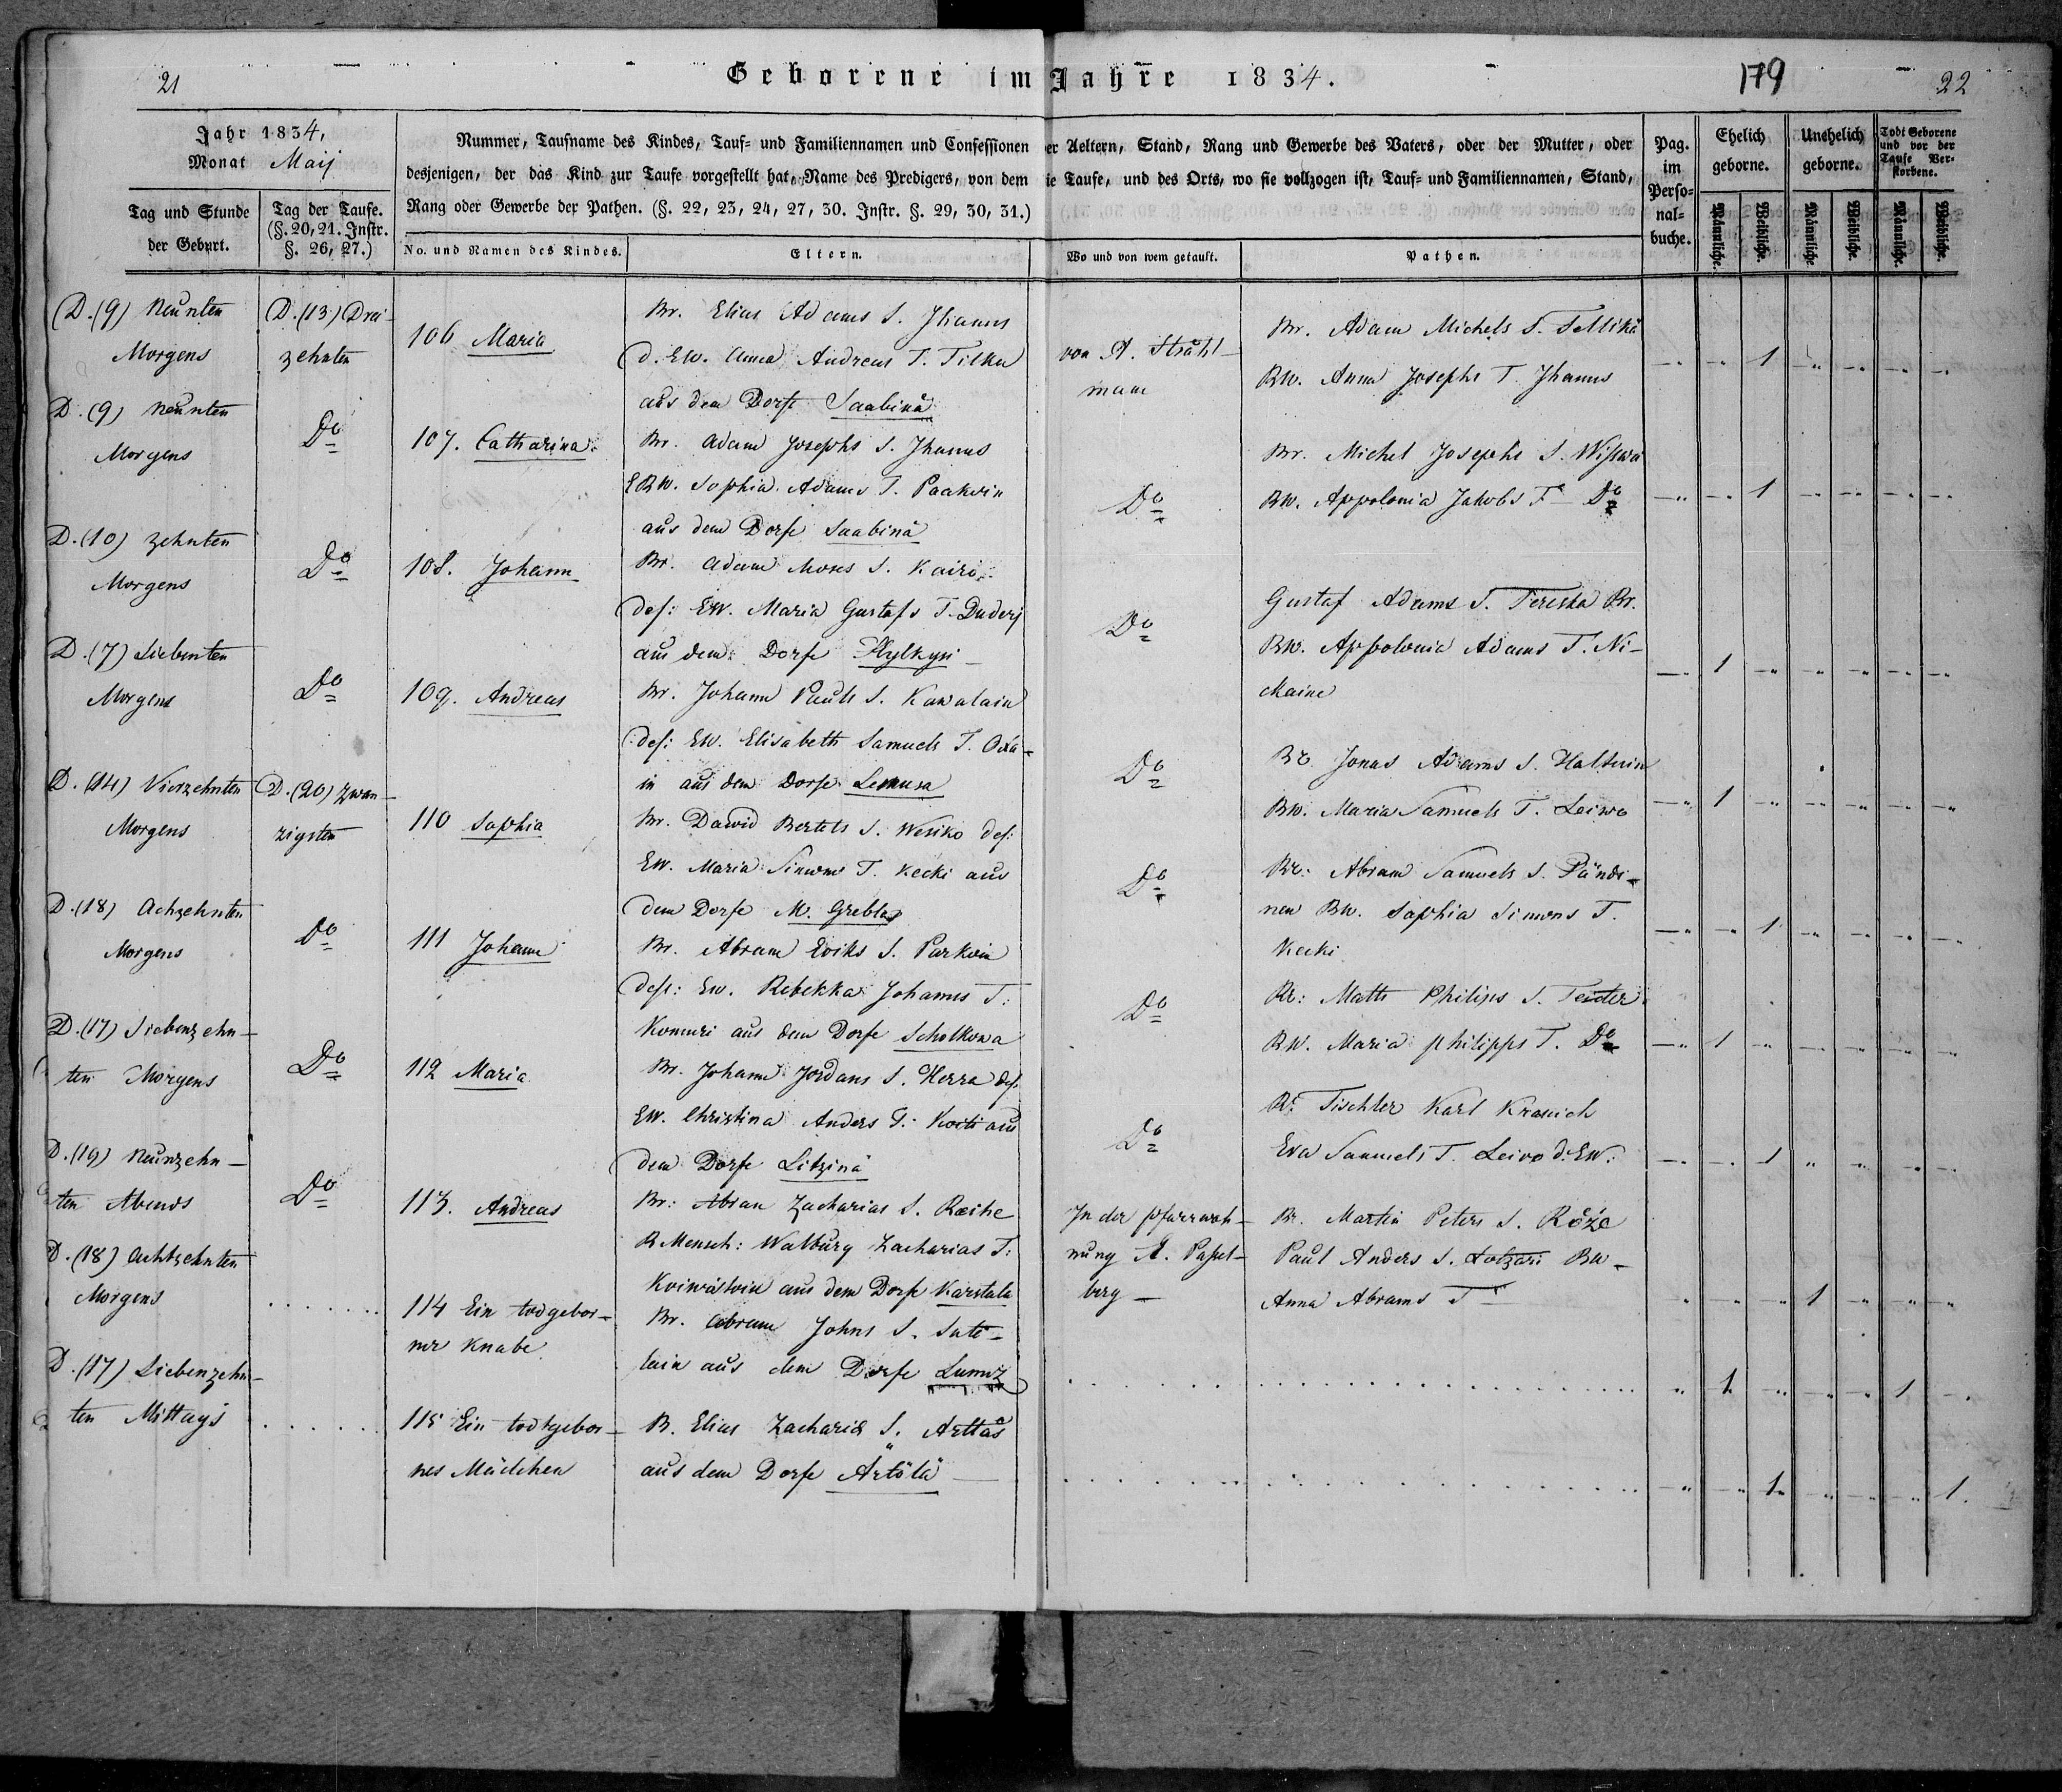 21
Geborene im Jahre 1834.
179
22
Jahr 1834,
Monat Maij
Nummer, Taufname des Kindes, Tauf- und Familiennamen und Confessionen
er Aeltern, Stand, Rang und Gewerbe des Vaters, oder der Mutter, oder
desjenigen, der das Kind zur Taufe vorgestellt hat, Name des Predigers, von dem
ie Taufe, und des Orts, wo sie vollzogen ist, Tauf- und Familiennamen, Stand,
Rang oder Gewerbe der Pathen. (§. 22, 23, 24, 27, 30. Instr. §. 29, 30, 31.)
Tag und Stunde
der Geburt.
Tag der Taufe.
(§. 20, 21. Instr.
§. 26, 27.)
No. und Namen des Kindes.
Eltern.
Wo und von wem getauft.
Pathen.
Pag.
im
Perso-
nal-
buche.
Ehelich
geborne.
Unehelich
geborne.
Todt Geborene
und vor der
Taufe Ver-
storbene.
Männliche.
Weibliche.
Männliche.
Weibliche.
Männliche.
Weibliche.
D. (9) Neunten
Morgens
D. (13) Drei-
zehnten
106 Maria
Br. Elias Adams S. Ihanus
d. EW. Anna Andreas T. Tilku
aus dem Dorfe Saabinä
von A. Stråhl-
mann
Br. Adam Michels S.
BW. Anna Josephs T. Ihanus
1
D. (9) Neunten
Morgens
Do
107. Catharina
Br. Adam Josephs S. Ihanus
EBW. Sophia Adams T. Paakein
aus dem Dorfe Saabinä
Do
Br. Michel Josephs S.
BW. Appolonia Jakobs T Do
1
D. (10) Zehnten
Morgens
Do
108. Johann
Br. Adam Moses S. Kairo
des: EW. Maria Gustafs T. Duderj
aus dem Dorfe
Do
Gustaf Adams S. Pereska Br.
BW. Appolonia Adams T. Ni-
kaine
1
D. (7) Siebenten
Morgens
Do
109. Andreas
Br. Johann Pauls S. Kawalain
des: EW. Elisabeth Samuels T. Oxa-
in aus dem Dorfe Lemusa
Do
Br. Jonas Adams S. Haltuin
BW. Maria Samuels T. Leiwo
1
D. (14) Vierzehnten
Morgens
D. (20) Zwan-
zigsten
110 Sophia
Br. Dawid Bertels S. Wesiko des:
EW. Maria Simons T. Kecki aus
dem Dorfe M. Greblo
Do
Br: Abram Samuels S. Pändi-
nen BW. Sophia Simons T.
Kecki
1
D. (18) Achzehnten
Morgens
Do
111 Johann
Br. Abram Eriks S. Parkein
des: Ew. Rebekka Johanns T:
Komuri aus dem Dorfe Scholkowa
Do
Br: Matts Philips S. Teider
BW. Maria philipps T. Do
1
D. (17) Siebenzehn-
ten Morgens
Do
112 Maria
Br. Johann Jordans S. Herra des
EW. Christina Anders T. Koiti aus
dem Dorfe Litzinä
Do
Br. Tischler Karl Kranich
Eva Samuels T. Leivo d. EW.
1
D. (19) Neunzehn-
ten Abends
Do
113. Andreas
Br: Abram Zacharias S. Reihe
B Mensch: Walburg Zacharias T:
Koiwistoin aus dem Dorfe Karstala
In der Pfarrwoh-
nung A. Passel-
berg
Br. Martin Peters S. Röžo
Paul Anders S. Lotzari BW-
Anna Abrams T
1
D. (18) Achtzehnten
Morgens
114 Ein todgebor-
ner Knabe
Br. Abram Johns S. Sate-
lain aus dem Dorfe
1 1
D. (17) Siebenzehn-
ten Mittags
115 Ein todtgebor-
nes Mädchen
B. Elias Zacharias S. Arttås
aus dem Dorfe Artölä
1 1.